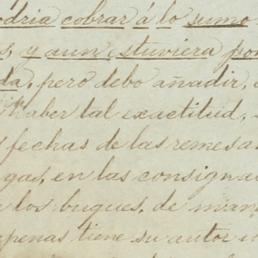 odria cobrar á lo sumo
os, y aun estuviera por
da, pero debo añadir,
haber tal exactitud,
fechas de las remesa
gas, en las consigna
los buques, de man
apenas tiene su autor u